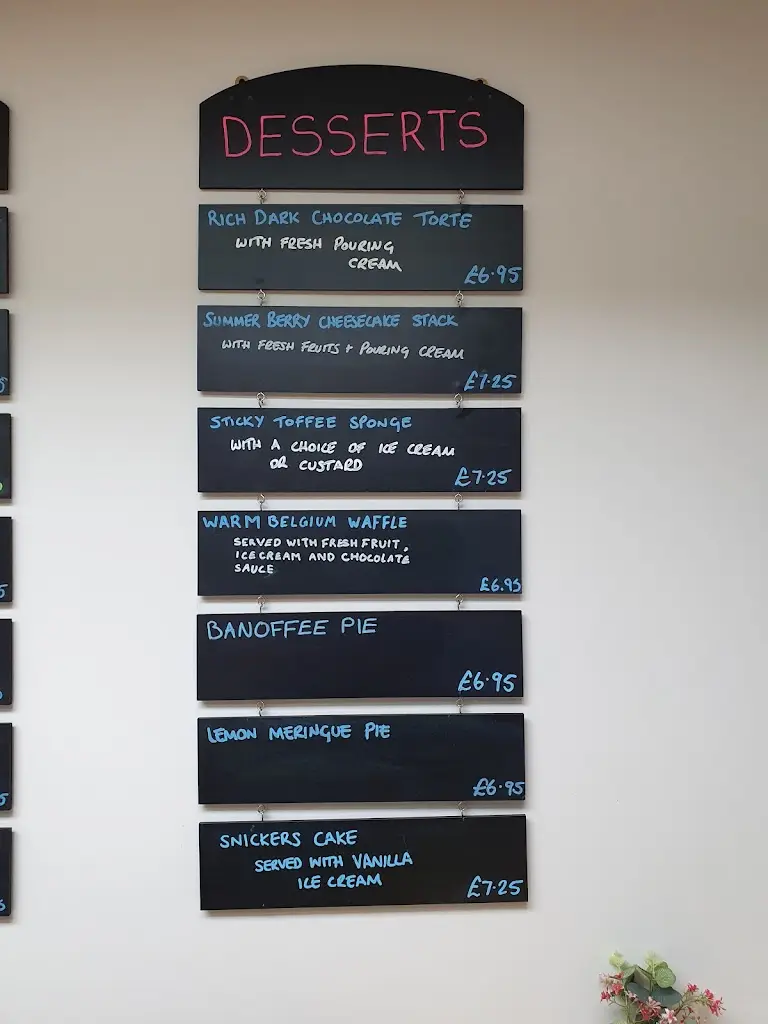 DESSERTS
RICH DARK CHOCOLATE TORTE
WITH FRESH POURING
CREAM
£6.95
SUMMER BERRY CHEESECAKE STACK
WITH FRESH FRUITS + POURING CREAM
£7.25
STICKY TOFFEE SPONGE
WITH A CHOICE OF ICE CREAM
OR CUSTARD
£7.25
WARM BELGIUM WAFFLE
SERVED WITH FRESH FRUIT,
ICE CREAM AND CHOCOLATE
SAUCE
£6.95
BANOFFEE PIE
£6.95
LEMON MERINGUE PIE
£6.95
SNICKERS CAKE
SERVED WITH VANILLA
ICE CREAM
£7.25